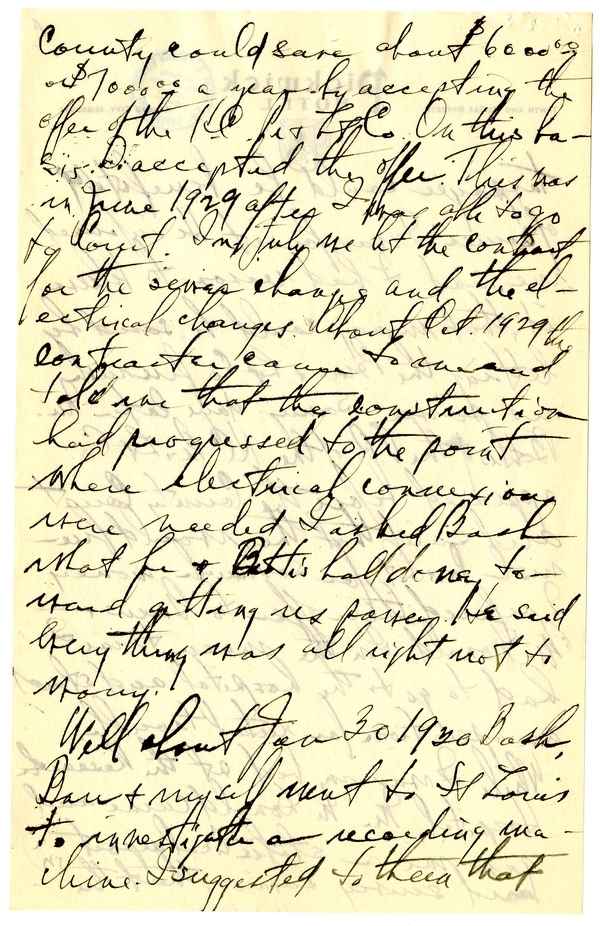 County could save about $6000.00
or $7000.00 a year by accepting the
offer of the K.C. Co. On this ba-
sis accepted the offer. This was
in June 1929 after I was able to go
to Court. In July we let the contract
for the sewer change and the el-
ectrical changes. About Oct. 1929 the
contractor came to me and
told me that the construction
had progressed to the point
where electrical connexions
were needed. I asked Bash
what he + Bettis had done to-
ward getting us power. He said
everything was all right not to
worry.
Well about Jan 30 1930 Bash,
Barr + myself went to St Louis
to investigate a recording ma-
chine. I suggested to them that
Pickwick